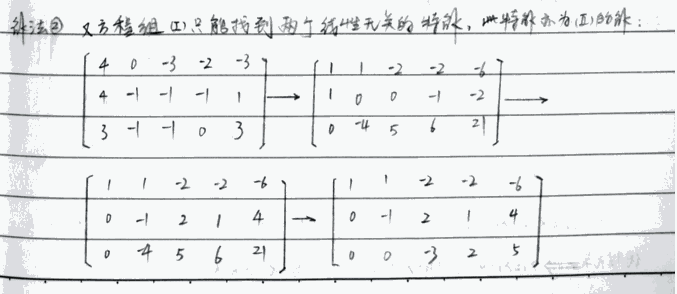 解法② 又方程组(I)只能找到两个线性无关的特解,此特解亦为(II)的解:
4 0 -3 -2 -3
4 -1 -1 -1 1
3 -1 -1 0 3
→
1 1 -2 -2 -6
1 0 0 -1 -2
0 -4 5 6 21
→
1 1 -2 -2 -6
0 -1 2 1 4
0 -4 5 6 21
→
1 1 -2 -2 -6
0 -1 2 1 4
0 0 -3 2 5